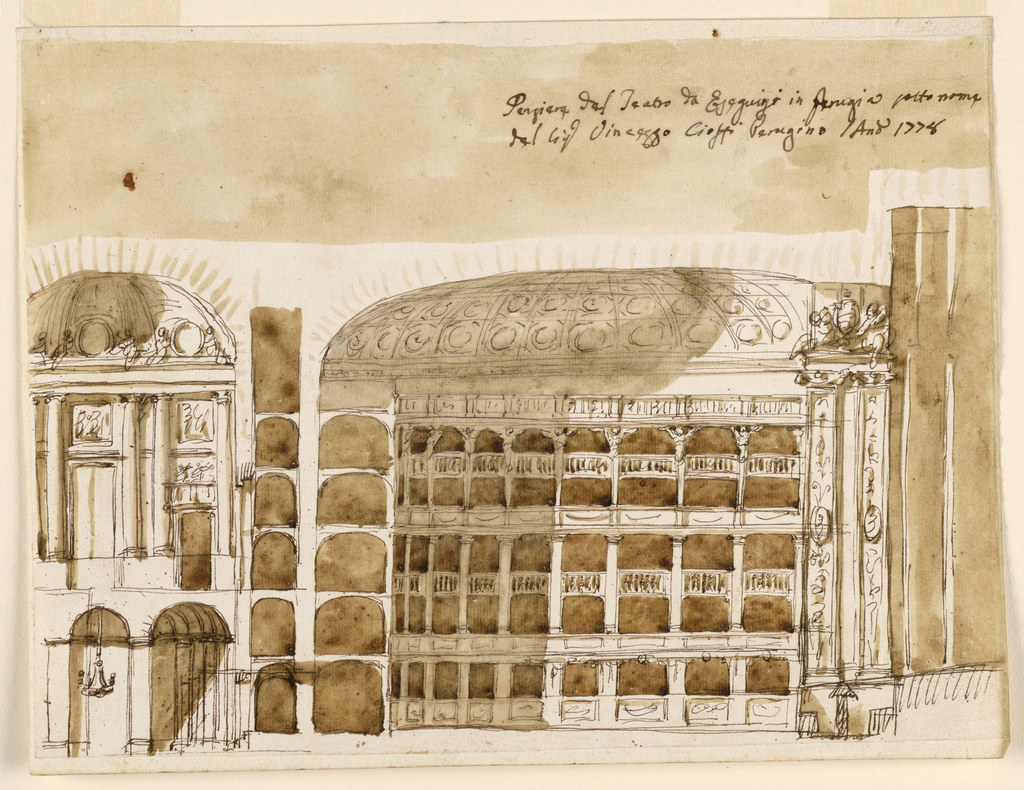 Pensiere del Teatro da Eseguirsi in Perugia sotto nome
del Sig Vincenzo Cioffi Perugino l'Ano 1778